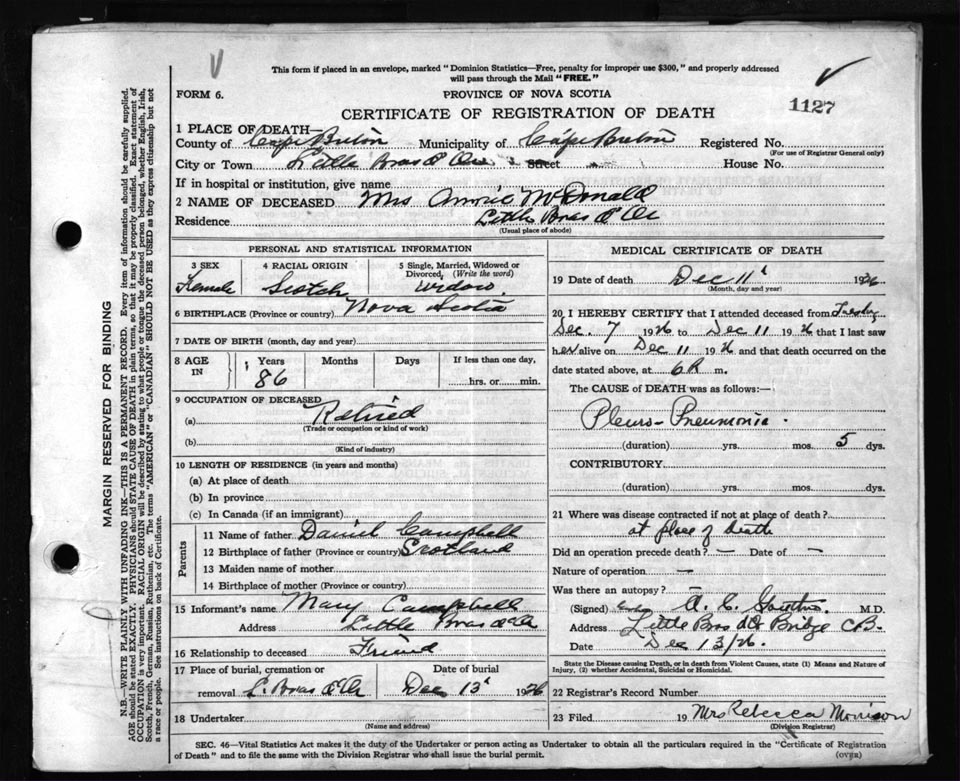 This form if placed in an envelope, marked "Dominion Statistics—Free, penalty for improper use $300," and properly addressed
will pass through the Mail "FREE."
FORM 6.
PROVINCE OF NOVA SCOTIA
CERTIFICATE OF REGISTRATION OF DEATH
1127
1 PLACE OF DEATH—
County of Cape Breton Municipality of Cape Breton Registered No.
(For use of Registrar General only)
City or Town Little Bras d'Or Street House No.
If in hospital or institution, give name
2 NAME OF DECEASED Mrs Annie McDonald
Residence Little Bras d'Or
(Usual place of abode)
PERSONAL AND STATISTICAL INFORMATION
3 SEX
Female
4 RACIAL ORIGIN
Scotch
5 Single, Married, Widowed or
Divorced, (Write the word)
widow
6 BIRTHPLACE (Province or country) Nova Scotia
7 DATE OF BIRTH (month, day and year)
8 AGE
IN
Years
86
Months
Days
If less than one day,
hrs. or min.
9 OCCUPATION OF DECEASED
(a) Retired
(Trade or occupation or kind of work)
(b)
(Kind of industry)
10 LENGTH OF RESIDENCE (in years and months)
(a) At place of death
(b) In province
(c) In Canada (if an immigrant)
Parents
11 Name of father Daniel Campbell
12 Birthplace of father (Province or country) Scotland
13 Maiden name of mother
14 Birthplace of mother (Province or country)
15 Informant's name Mary Campbell
Address Little Bras d'Or
16 Relationship to deceased Friend
17 Place of burial, cremation or
removal L. Bras d'Or
Date of burial
Dec 13 1926
18 Undertaker
(Name and address)
MEDICAL CERTIFICATE OF DEATH
19 Date of death Dec 11 1926
(Month, day and year)
20 I HEREBY CERTIFY that I attended deceased from Tuesday
Dec. 7 1926 to Dec 11 1926 that I last saw
her alive on Dec 11 1926 and that death occurred on the
date stated above, at 6 m.
The CAUSE of DEATH was as follows:—
Pleuro-Pneumonia.
(duration) yrs. mos. 5 dys.
CONTRIBUTORY.
(duration) yrs. mos. dys.
21 Where was disease contracted if not at place of death?
at place of death
Did an operation precede death? — Date of —
Nature of operation —
Was there an autopsy?
(Signed) A. C. M.D.
Address Little Bras d'Or Bridge C.B.
Date Dec 13/26.
State the Disease causing Death, or in death from Violent Causes, state (1) Means and Nature of
Injury, (2) whether Accidental, Suicidal or Homicidal.
22 Registrar's Record Number
23 Filed 19 Mrs Rebecca Morrison
(Division Registrar)
SEC. 46—Vital Statistics Act makes it the duty of the Undertaker or person acting as Undertaker to obtain all the particulars required in the "Certificate of Registration
of Death" and to file the same with the Division Registrar who shall issue the burial permit.
(OVER)
MARGIN RESERVED FOR BINDING
N.B.—WRITE PLAINLY WITH UNFADING INK—THIS IS A PERMANENT RECORD. Every item of information should be carefully supplied.
AGE should be stated EXACTLY. PHYSICIANS should STATE CAUSE OF DEATH in plain terms, so that it may be properly classified. Exact statement of
OCCUPATION is very important. RACIAL ORIGIN will be described by stating to what people or tongue the deceased person belonged, whether English, Irish,
Scotch, French, German, Russian, Ruthenian, etc. The terms "AMERICAN" or "CANADIAN" SHOULD NOT BE USED as they express citizenship but not
a race or people. See instructions on back of Certificate.